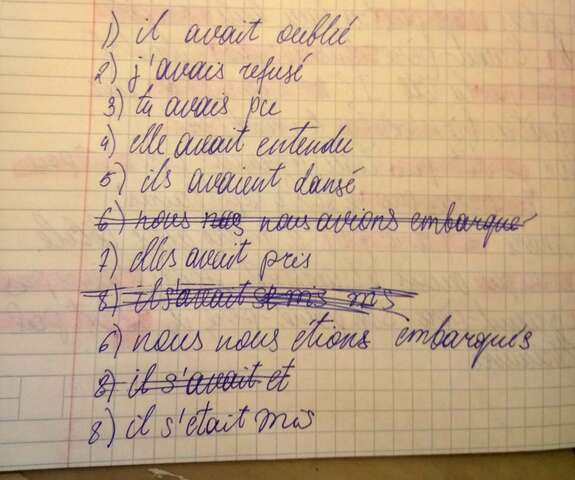 1) il avait oublié
2) j'avais refusé
3) tu avais pu
4) elle avait entendu
5) ils avaient dansé
6) nous nous nous avions embarqué
7) elles avait pris
8) il s'avait mis mis
6) nous nous étions embarqués
8) il s'avait et
8) il s'etait mis